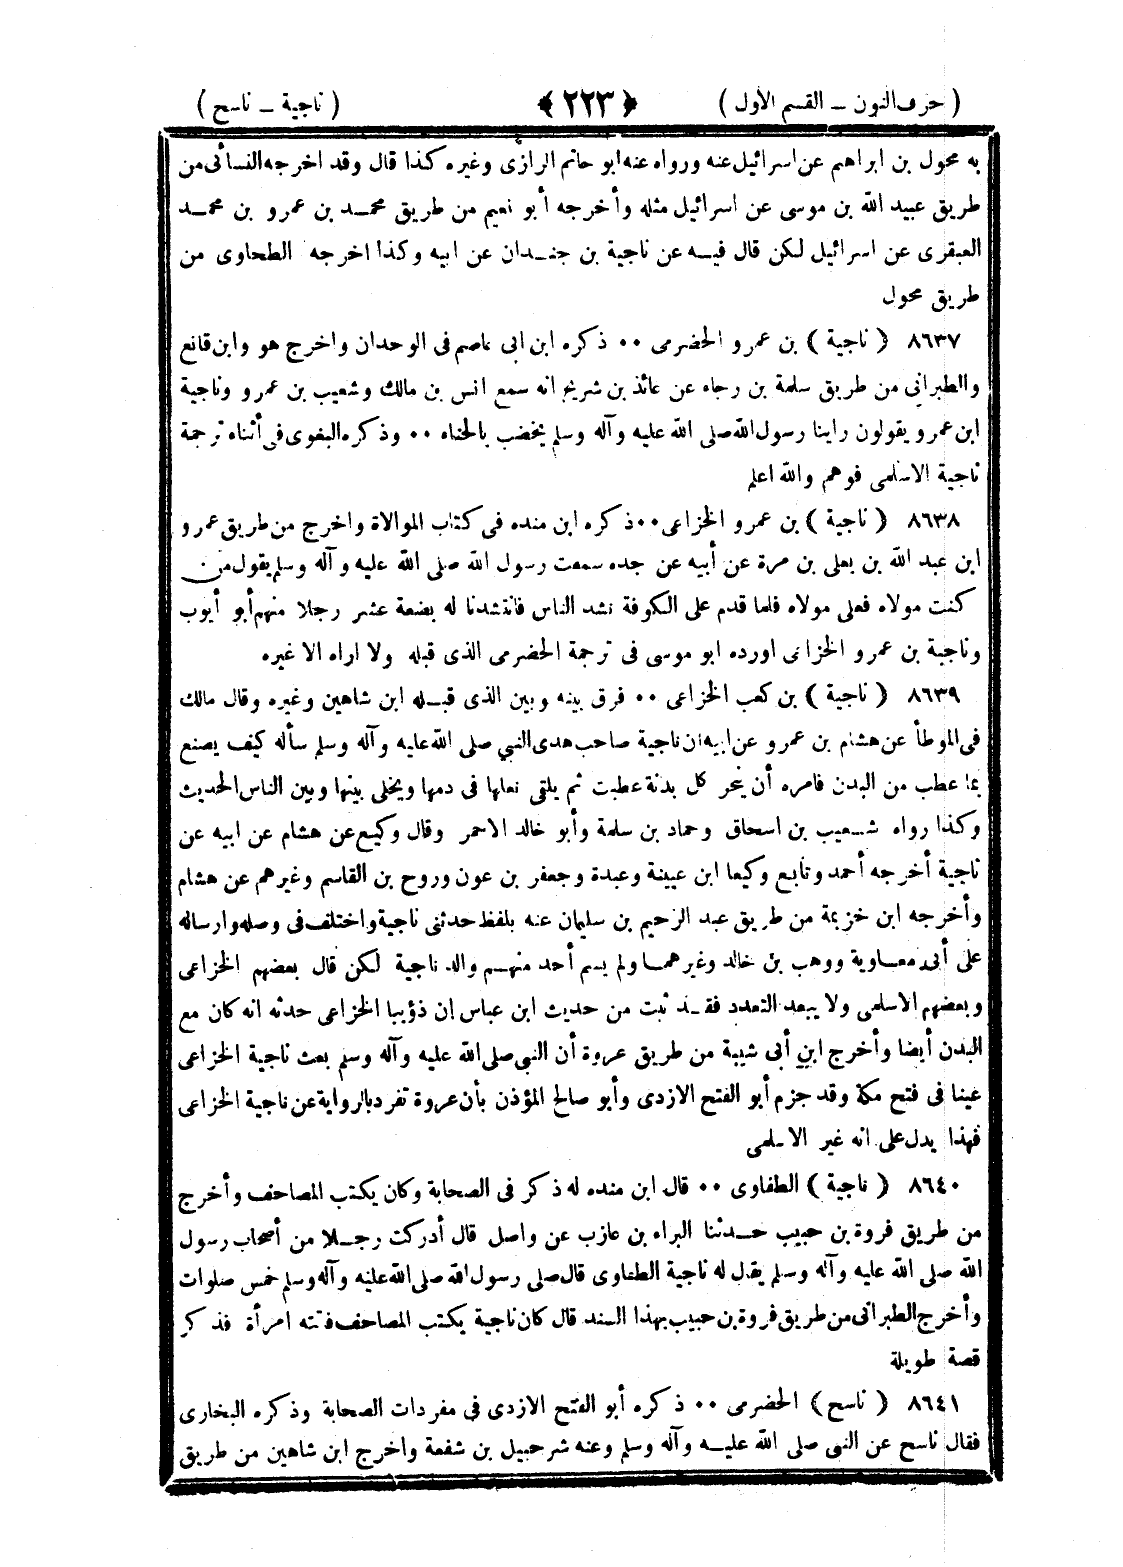 ( حرف النون – القسم الأول ) ﴿ ٢٢٣ ﴾ ( ناجية – ناسح )
به مخول بن ابراهيم عن اسرائيل عنه ورواه عنه ابو حاتم الرازى وغيره كذا قال وقد اخرجه النسائى من
طريق عبيد الله بن موسى عن اسرائيل مثله وأخرجه أبو نعيم من طريق محمد بن عمرو بن محمد
العبقرى عن اسرائيل لكن قال فيه عن ناجية بن جندان عن ابيه وكذا اخرجه الطحاوى من
طريق مخول
٨٦٣٧ ( ناجية ) بن عمرو الحضرمى ٠٠ ذكره ابن ابى عاصم فى الوحدان واخرج هو وابن قانع
والطبراني من طريق سلمة بن رجاء عن عائذ بن شريح انه سمع انس بن مالك وشعيب بن عمرو وناجية
ابن عمرو يقولون راينا رسول الله صلى الله عليه وآله وسلم يخضب بالحناء ٠٠ وذكره البغوى فى أثناء ترجمة
ناجية الاسلمى فوهم والله اعلم
٨٦٣٨ ( ناجية ) بن عمرو الخزاعى ٠٠ ذكره ابن منده فى كتاب الموالاة واخرج من طريق عمرو
ابن عبد الله بن يعلى بن مرة عن أبيه عن جده سمعت رسول الله صلى الله عليه وآله وسلم يقول من
كنت مولاه فعلى مولاه فلما قدم على الكوفة نشد الناس فانتشدنا له بضعة عشر رجلا منهم أبو أيوب
وناجية بن عمرو الخزاعى اورده ابو موسى فى ترجمة الحضرمى الذى قبله ولا اراه الا غيره
٨٦٣٩ ( ناجية ) بن كعب الخزاعى ٠٠ فرق بينه وبين الذى قبله ابن شاهين وغيره وقال مالك
فى الموطأ عن هشام بن عمرو عن ابيه ان ناجية صاحب هدى النبي صلى الله عليه وآله وسلم سأله كيف يصنع
بما عطب من البدن فامره أن ينحر كل بدنة عطبت ثم يلقى نعلها فى دمها ويخلى بينها وبين الناس الحديث
وكذا رواه شعيب بن اسحاق وحماد بن سلمة وأبو خالد الاحمر وقال وكيع عن هشام عن ابيه عن
ناجية أخرجه أحمد وتابع وكيعا ابن عيينة وعبدة وجعفر بن عون وروح بن القاسم وغيرهم عن هشام
وأخرجه ابن خزيمة من طريق عبد الرحيم بن سليمان عنه بلفظ حدثنى ناجية واختلف فى وصله وارساله
على أبى معاوية ووهب بن خالد وغيرهما ولم يسم أحد منهم والد ناجية لكن قال بعضهم الخزاعى
وبعضهم الاسلمى ولا يبعد التعدد فقد ثبت من حديث ابن عباس إن ذؤيبا الخزاعى حدثه انه كان مع
البدن أيضا وأخرج ابن أبى شيبة من طريق عروة أن النبى صلى الله عليه وآله وسلم بعث ناجية الخزاعى
عينا فى فتح مكة وقد جزم أبو الفتح الازدى وأبو صالح المؤذن بأن عروة تفرد بالرواية عن ناجية الخزاعى
فهذا يدل على انه غير الاسلمى
٨٦٤٠ ( ناجية ) الطفاوى ٠٠ قال ابن منده له ذكر فى الصحابة وكان يكتب المصاحف وأخرج
من طريق فروة بن حبيب حدثنا البراء بن عازب عن واصل قال أدركت رجلا من أصحاب رسول
الله صلى الله عليه وآله وسلم يقال له ناجية الطفاوى قال صلى رسول الله صلى الله عليه وآله وسلم خمس صلوات
وأخرج الطبرانى من طريق فروة بن حبيب بهذا السند قال كان ناجية يكتب المصاحف فاتته امرأة فذكر
قصة طويلة
٨٦٤١ ( ناسح ) الحضرمى ٠٠ ذكره أبو الفتح الازدى فى مفردات الصحابة وذكره البخارى
فقال ناسح عن النبى صلى الله عليه وآله وسلم وعنه شرحبيل بن شفعة واخرج ابن شاهين من طريق